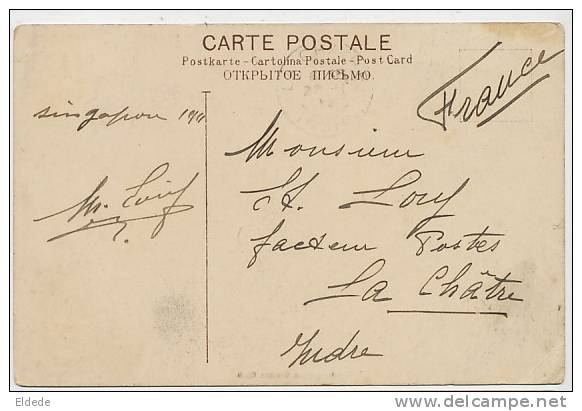 CARTE POSTALE
Postkarte - Cartolina Postale - Post Card
ОТКРЫТОЕ ПИСЬМО.
France
Singapour 1911
Monsieur
facteur Postes
La Châtre
Indre
Eldede
delcampe.net